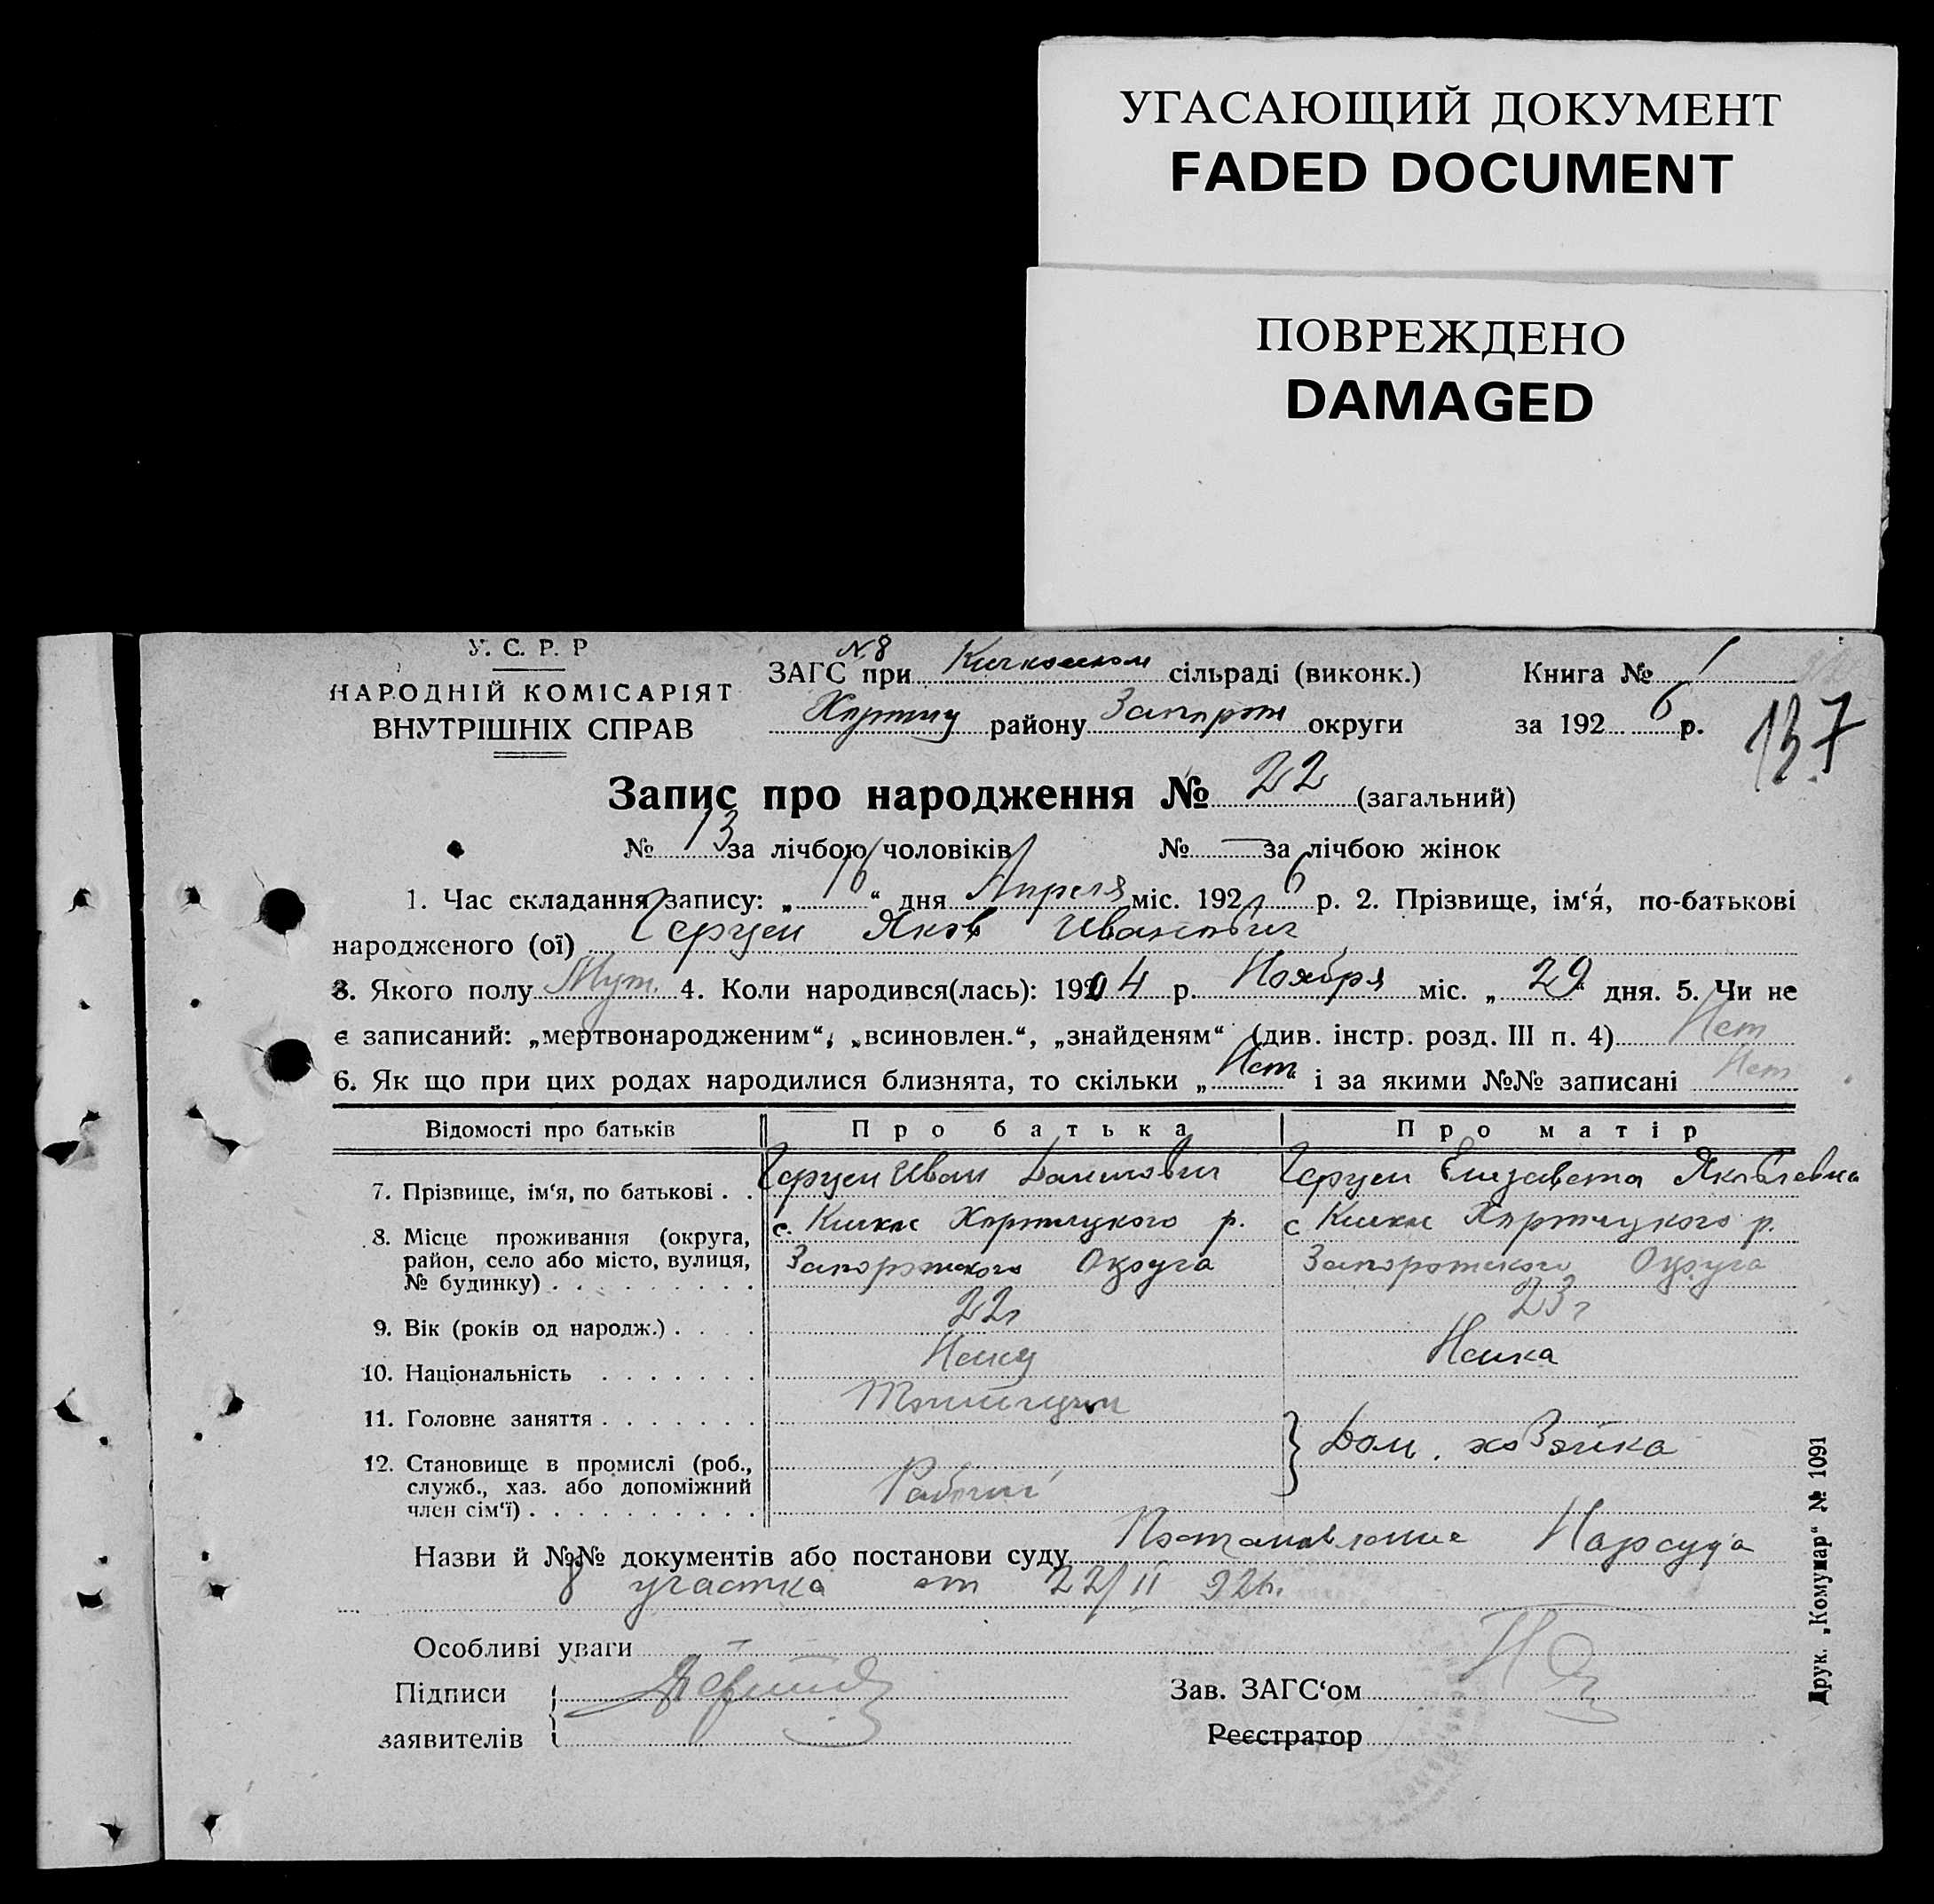 УГАСАЮЩИЙ ДОКУМЕНТ
FADED DOCUMENT
ПОВРЕЖДЕНО
DAMAGED
У. С. Р. Р
НАРОДНІЙ КОМІСАРІЯТ
ВНУТРІШНІХ СПРАВ
N 8
ЗАГС при Кичкаском сільраді (виконк.) Книга № 1
Хортиц району Запорож округи за 192 6 р.
137
Запис про народження № 22 (загальний)
№ 13 за лічбою чоловіків № — за лічбою жінок
1. Час складання запису: „ 16 “ дня Апреля міс. 192 6 р. 2. Прізвище, ім‘я, по-батькові
народженого (ої) Яков Иванович
3. Якого полу Муж. 4. Коли народився(лась): 1904 р. Ноября міс. „ 29 “ дня. 5. Чи не
є записаний: „мертвонародженим“, „всиновлен.“, „знайденям“ (див. інстр. розд. III п. 4) Нет
6. Як що при цих родах народилися близнята, то скільки „ Нет “ і за якими №№ записані Нет
Відомості про батьків Про батька Про матір
7. Прізвище, ім‘я, по батькові . . Иван Елизавета Яковлевна
8. Місце проживання (округа, район, село або місто, вулиця, № будинку) . . . . . . . . . с. Кичкас Хортицкого р. с Кичкас Хортицкого р.
Запорожского Округа Запорожского Округа
9. Вік (років од народж.) . . . . 22 г 23 г
10. Національність . . . . . . . Немец Немка
11. Головне заняття . . . . . . .
Дом. хозяйка
12. Становище в промислі (роб., служб., хаз. або допоміжний член сім‘ї) . . . . . . . . . . Рабочий
Назви й №№ документів або постанови суду Постановление Нарсуда
8 участка от 22/II 926г.
Особливі уваги —
Підписи
заявителів
Зав. ЗАГС‘ом
Реєстратор
Друк. „Комунар“ № 1091